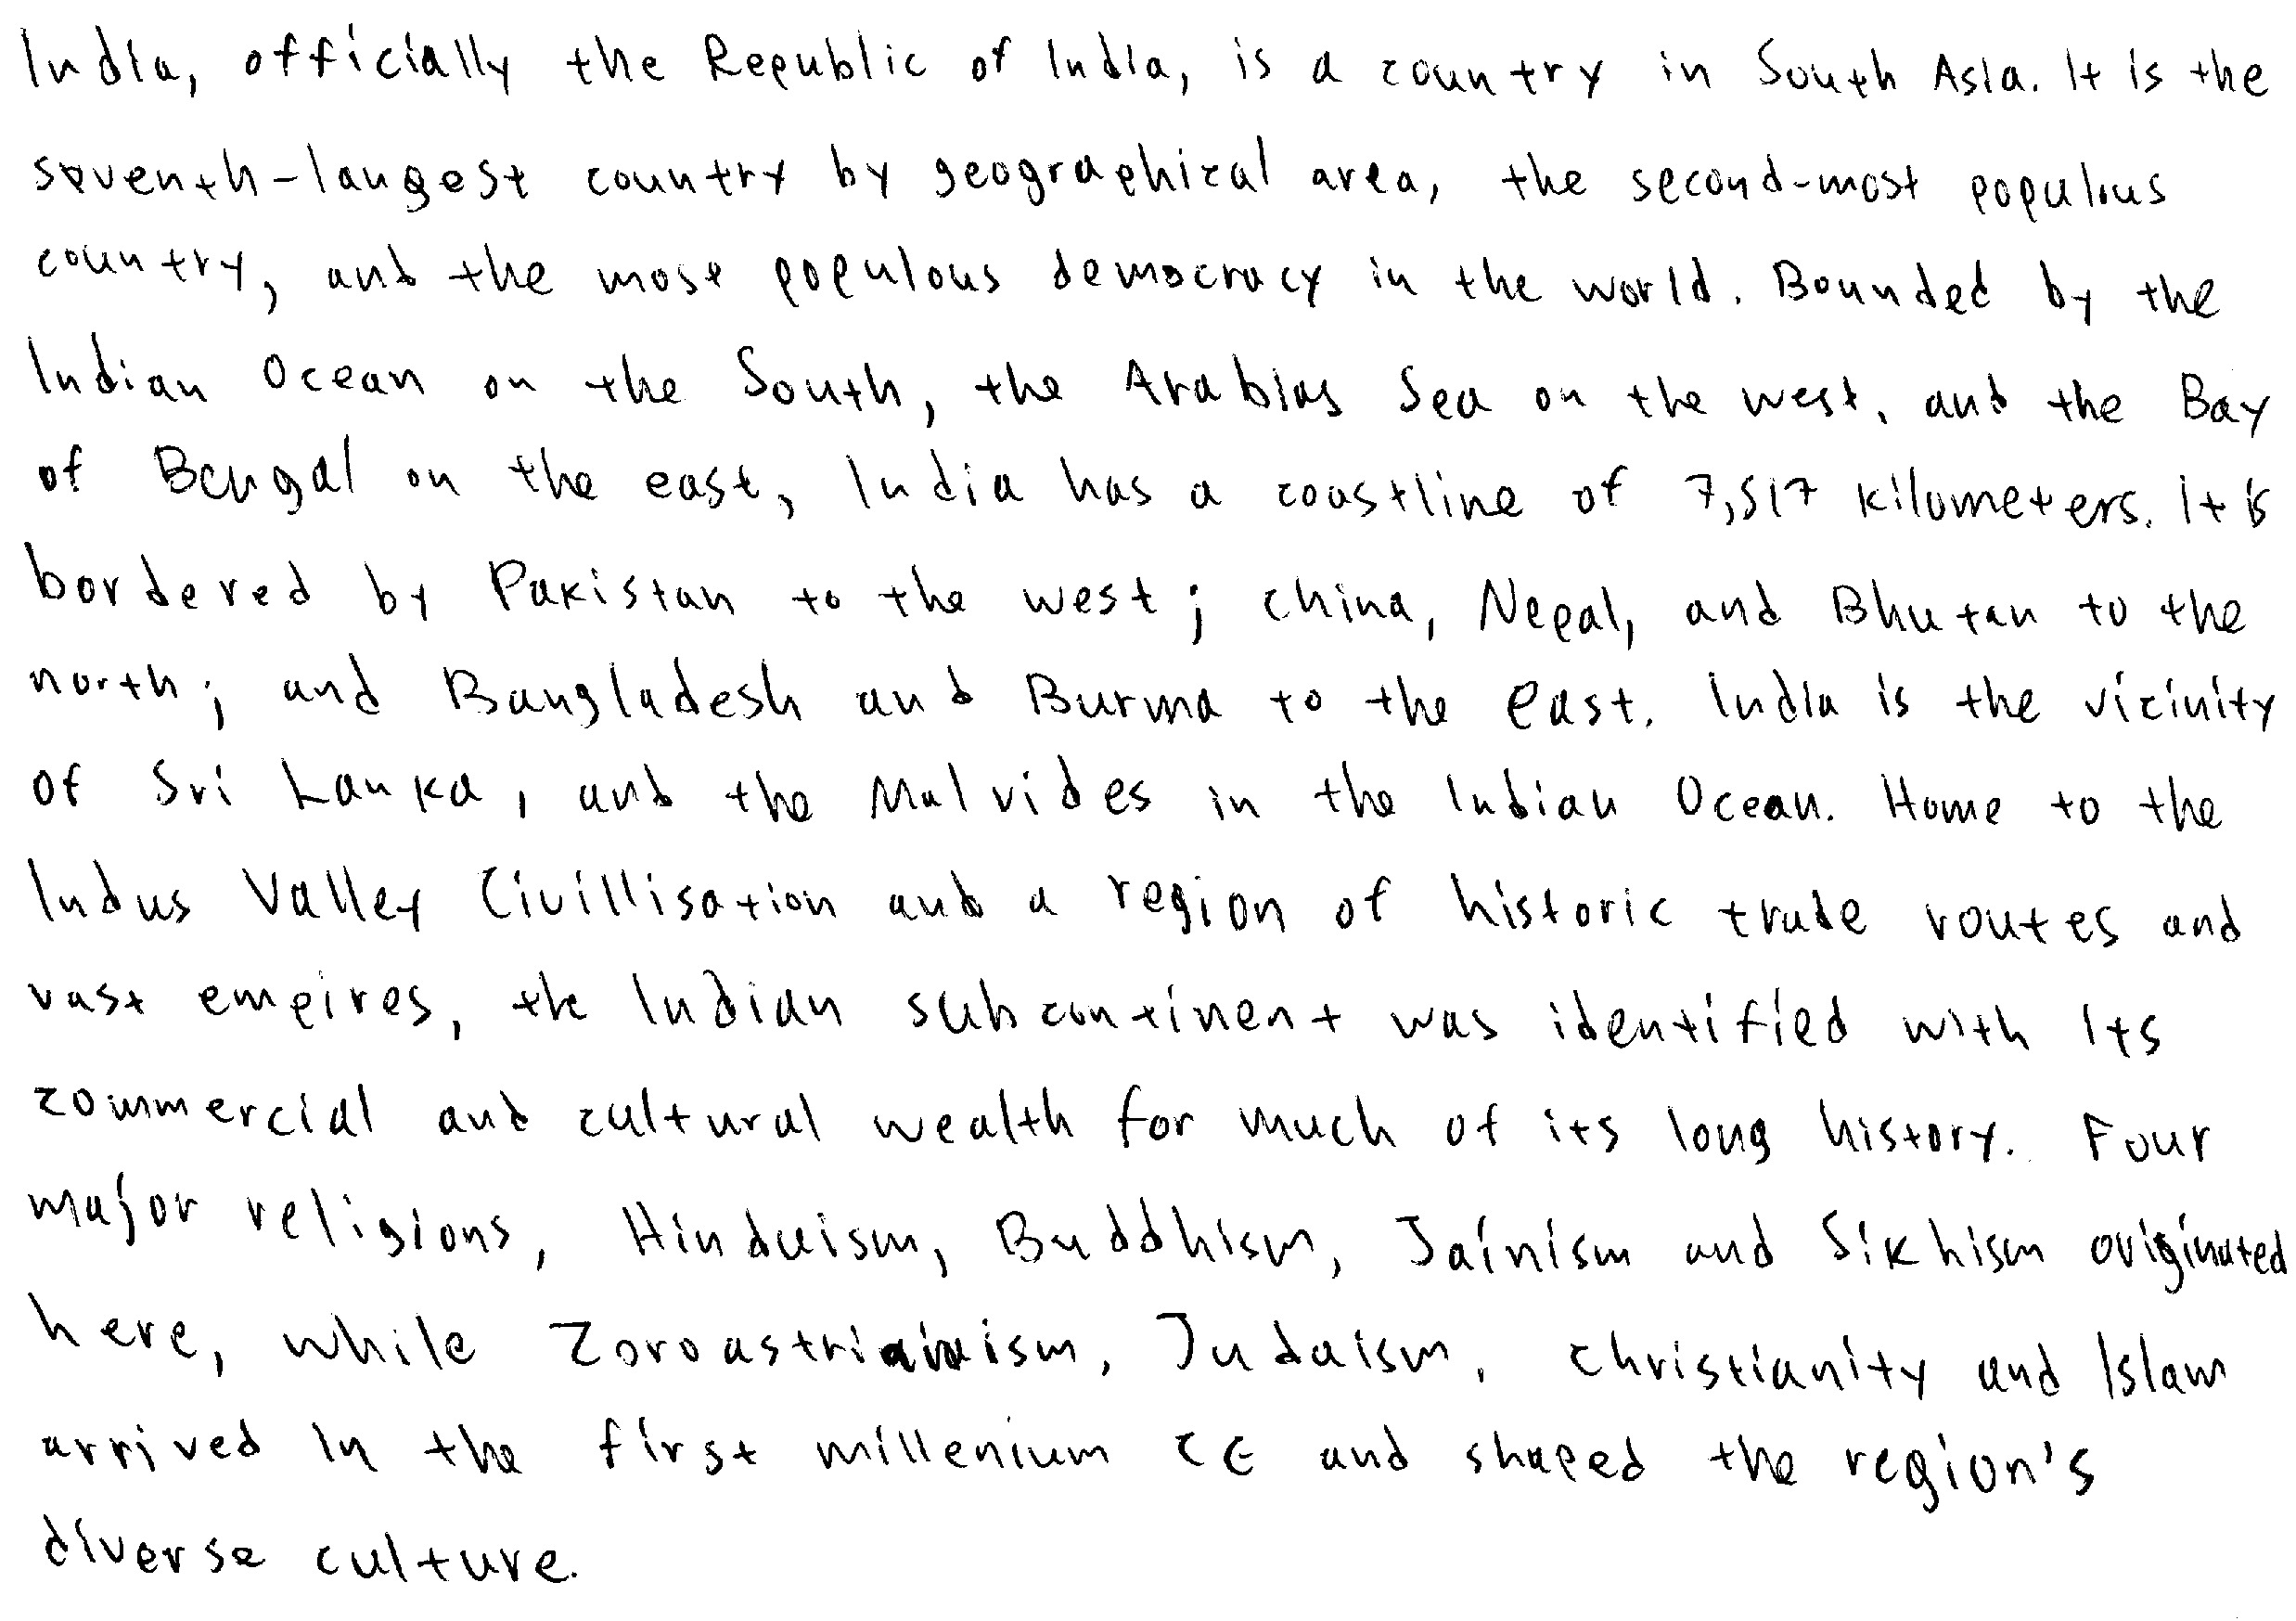 India, officially the Republic of India, is a country in South Asia. It is the
seventh-largest country by geographical area, the second-most populous
country, and the most populous democracy in the world. Bounded by the
Indian Ocean on the South, the Arabias Sea on the west, and the Bay
of Bengal on the east, India has a coastline of 7,517 kilometers. It is
bordered by Pakistan to the west; china, Nepal, and Bhutan to the
north; and Bangladesh and Burma to the east. India is the vicinity
of Sri Lanka, and the Malvides in the Indian Ocean. Home to the
Indus Valley Civillisation and a region of historic trade routes and
vast empires, the Indian subcontinent was identified with its
commercial and cultural wealth for much of its long history. Four
major religions, Hinduism, Buddhism, Jainism and Sikhism originated
here, while Zoroastrianism, Judaism, christianity and Islam
arrived in the first millenium CE and shaped the region's
diverse culture.